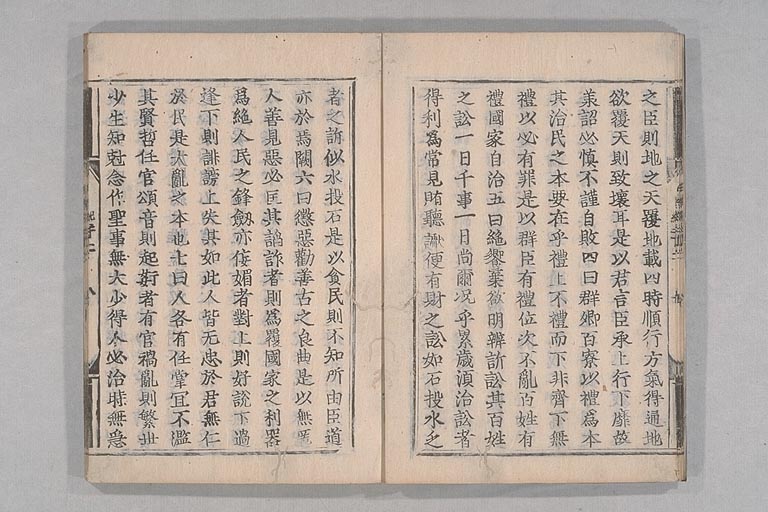 之臣則地之天覆地載四時順行方氣得通地
欲覆天則致壞耳是以君言臣承上行下靡故
羕詔必慎不謹自敗四曰群卿百寮以禮爲本
其治民之本要在乎禮上不禮而下非齊下無
禮以必有罪是以群臣有禮位次不亂百姓有
禮國家自治五曰絶饗棄欲明辨訴訟其百姓
之訟一日千事一日尚爾况乎累歳湏治訟者
得利爲常見賄聽讞便有財之訟如石投水乏
者之訴似水投石是以貧民則不知所由臣道
亦於焉闕六曰懲惡勸善古之良典是以無匿
人善見惡必匡其謟詐者則爲覆國家之利器
爲絶人民之鋒劔亦侫媚者對上則好說下過
逢下則誹謗上失其如此人皆无忠於君無仁
於民是大亂之本也七曰人各有任掌冝不濫
其賢哲任官頌音則起姧者有官禍亂則繁世
少生知尅念作聖事無大少得人必治時無急